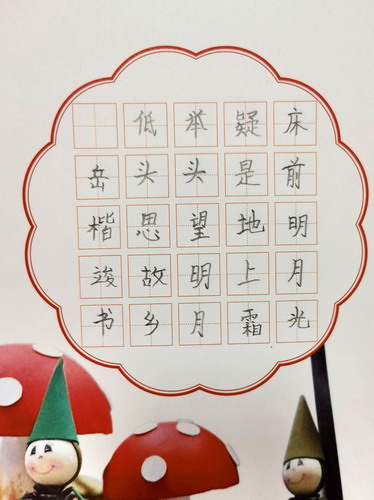 床前明月光
疑是地上霜
举头望明月
低头思故乡
岳楷竣书